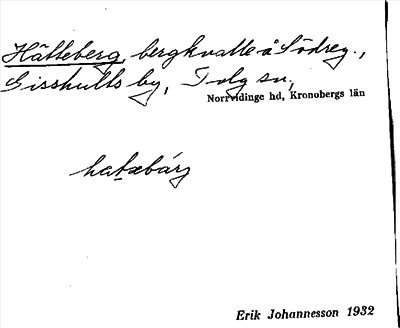 Hätteberg, bergkvalle å Södreg.,
Sisshults by, Tolg sn,
Norrvidinge hd, Kronobergs län
hatæbárj
Erik Johannesson 1932